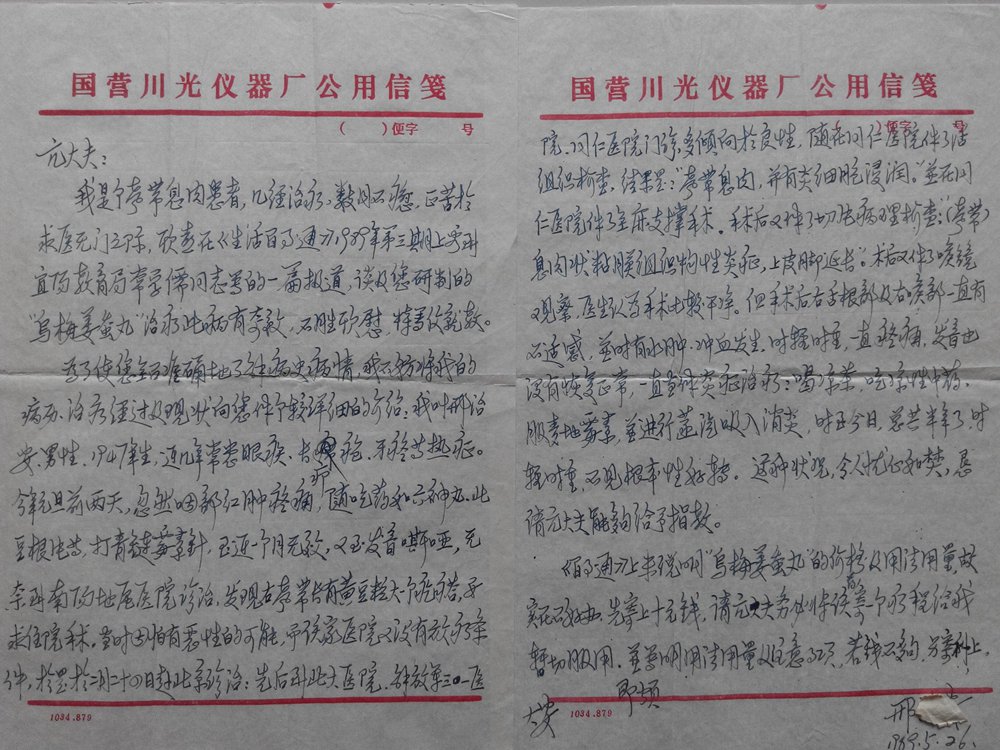 国营川光仪器厂公用信笺
( )便字 号
亢大夫:
我是个声带息肉患者,几经治疗,数月不愈,正苦于
求医无门之际,欣喜在《生活百事通》1989年第三期上看到
宜阳教育局常学儒同志写的一篇报道,谈及您研制的
“乌梅姜虫丸”治疗此病有奇效,不胜欣慰,特写信就教。
为了使您能准确地了解病史病情,我不妨将我的
病历、治疗经过及现状向您作个较详细的介绍:我叫邢治
安,男性,1947年生,近几年常患眼疾、长疮、牙疼等热症。
今年元旦前两天,忽然咽部红肿疼痛,随吃药如六神丸、北
豆根片等,打青链霉素针,至近个月无效,以至发音嘶哑,无
奈到南阳地区医院诊治,发现右声带长有黄豆粒大个疙瘩,要
求住院手术。当时因怕有恶性的可能,而该家医院又没有放疗条
件,于是于二月二十四日赴北京诊治:先后到北大医院、解放军三〇一医
1034.879
国营川光仪器厂公用信笺
( )便字 号
院、同仁医院门诊,多倾向于良性,随在同仁医院作了活
组织检查,结果是:“声带息肉,并有炎细胞浸润”。并在同
仁医院作了全麻支撑手术。手术后又作了切片病理检查:“(声带)
息肉状粘膜组织慢性炎症,上皮脚延长”。术后又作了喉镜
观察,医生认为手术比较干净。但手术后右舌根部及右喉部一直有
不适感,并时有水肿、冲血发生,时轻时重,一直疼痛,发音也
没有恢复正常,一直当作炎症治疗:喝汤药、吃调理中药、
服麦地霉素,并进行蒸汽吸入消炎,时至今日,总共半年了,时
轻时重,不见根本性好转。这种状况,令人忧心如焚,恳
请亢大夫能够给予指教。
《百事通》上未说明“乌梅姜虫丸”的价格及用法用量,故
先寄上十元钱,请亢大夫务必将该药寄个疗程给我
暂切服用。并写明用法用量及注意事项,若钱不够,另寄补上。
即颂
大安
邢
1989.5.26.
1034.879